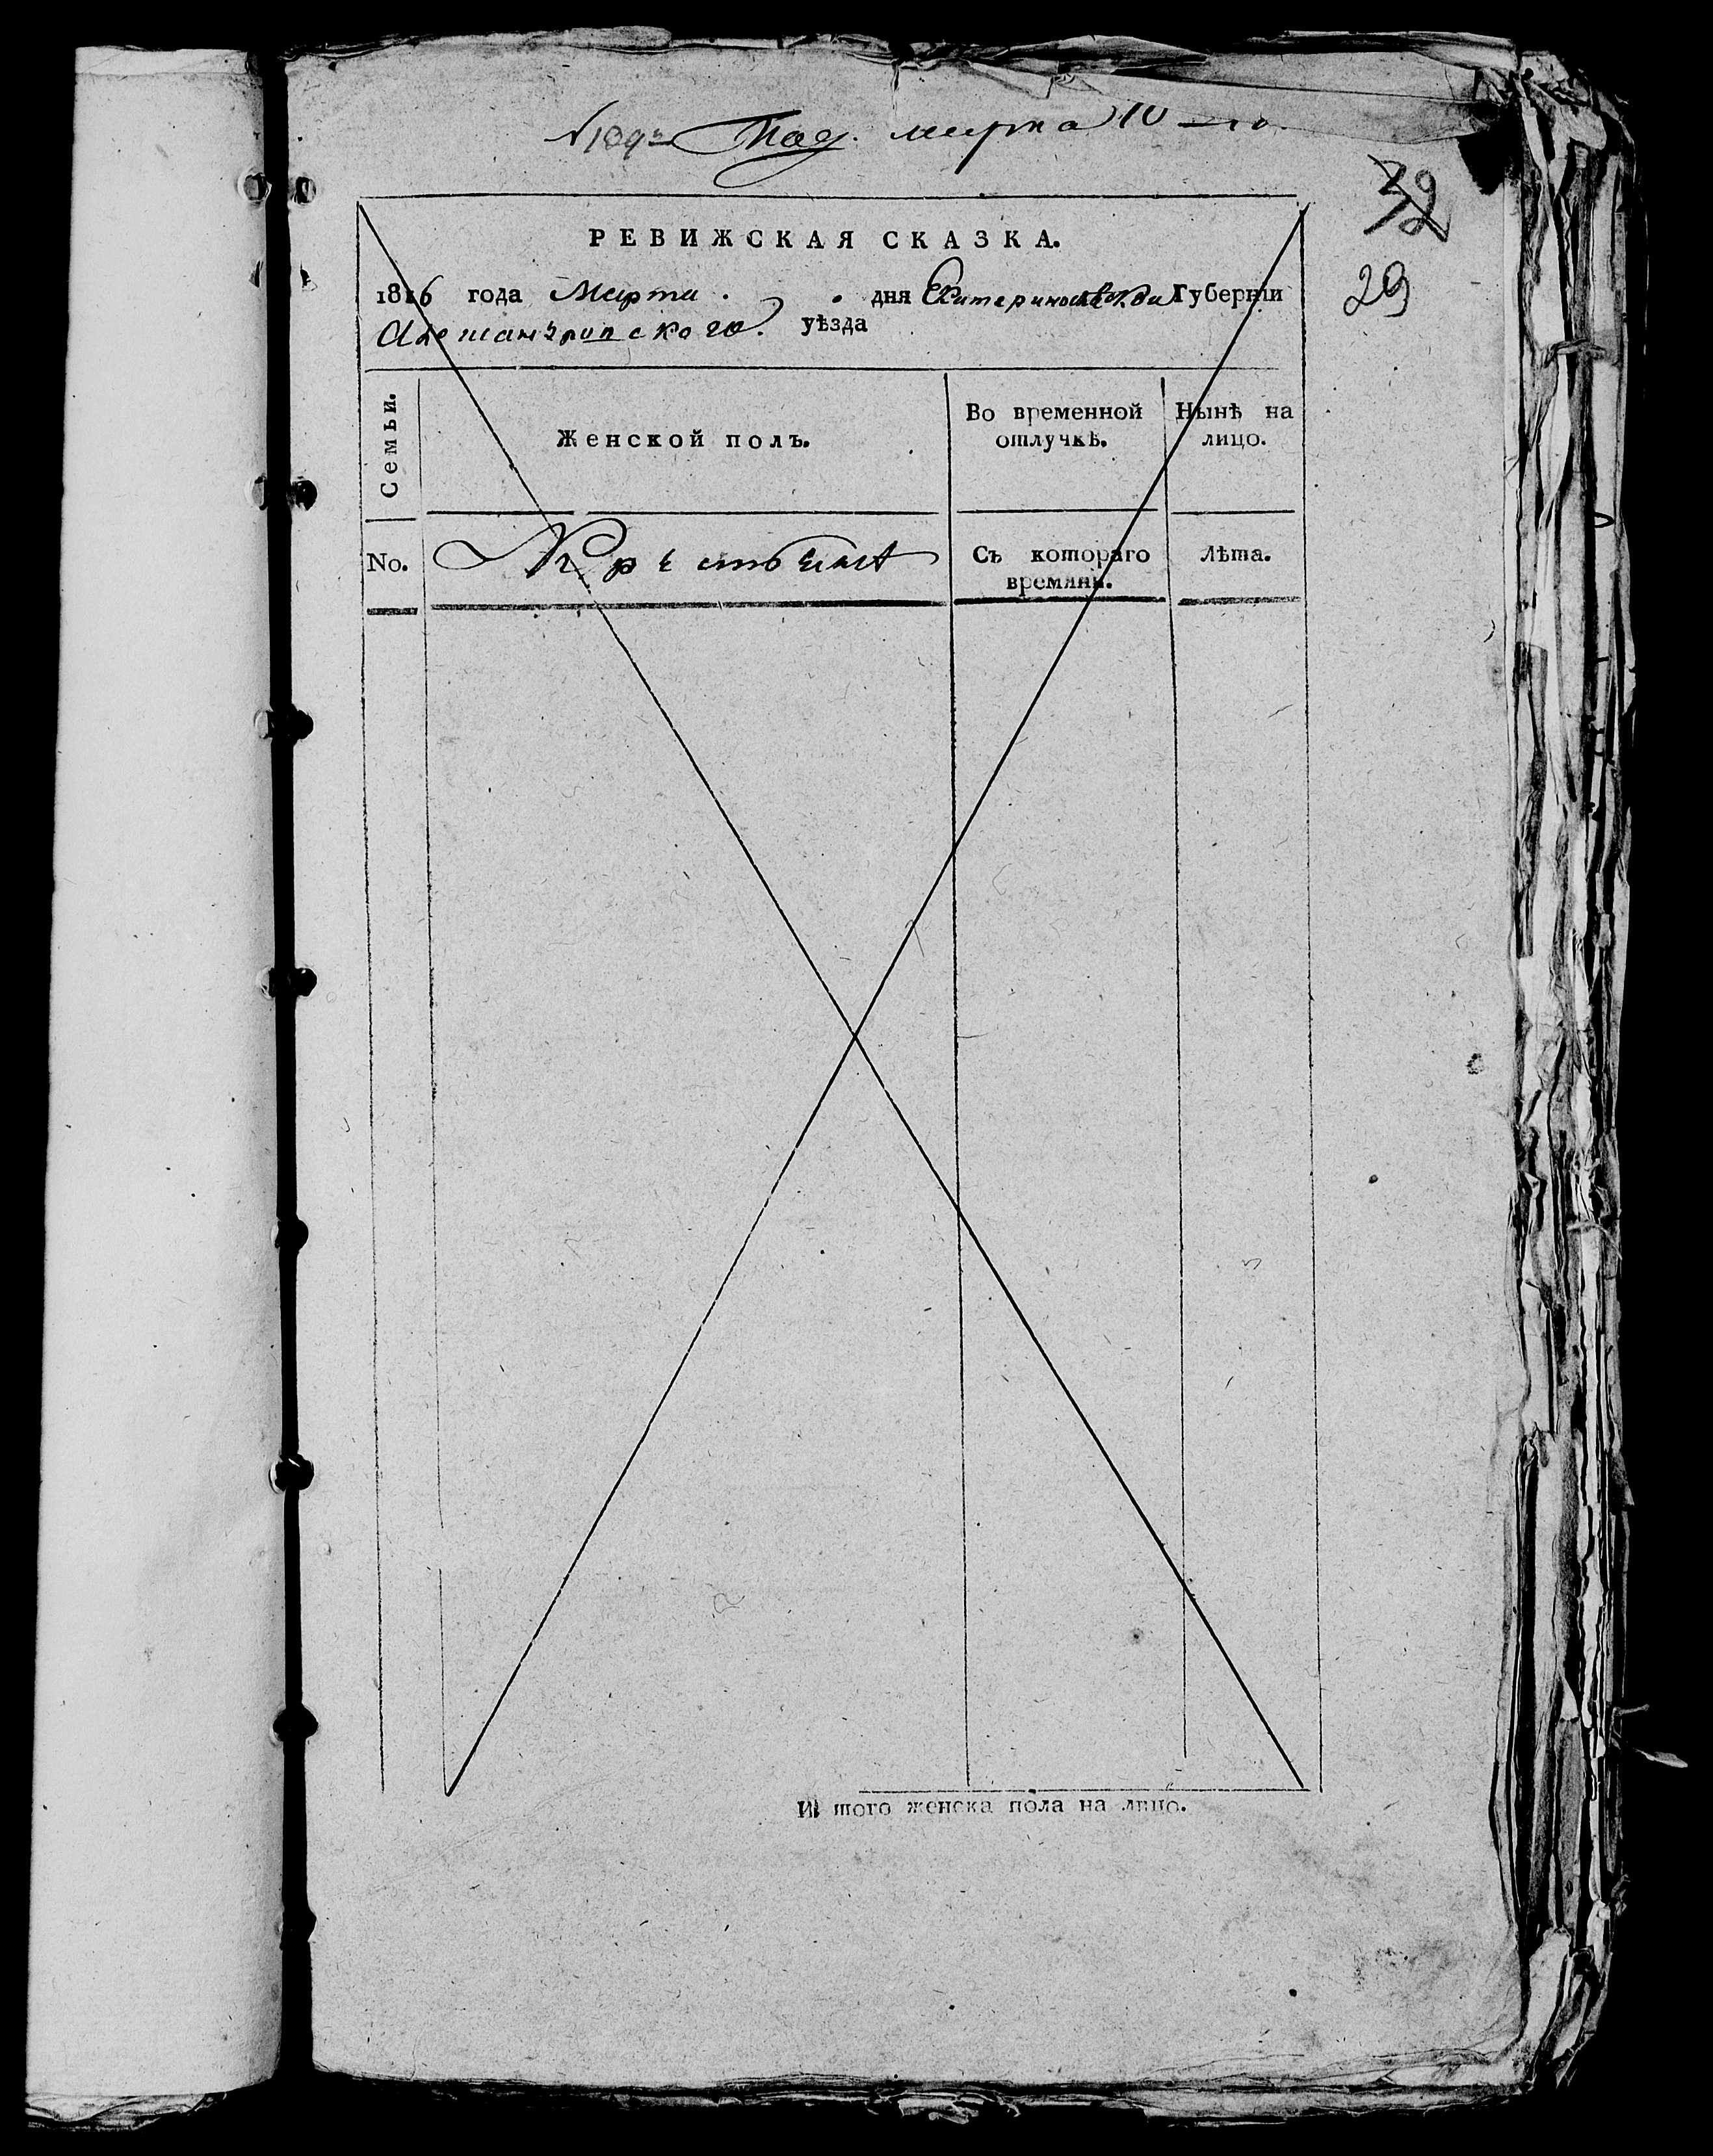 Под. марта 10 — го.
32
29
РЕВИЖСКАЯ СКАЗКА.
1816 года Марта . . дня Екатеринославской Губерніи
Александропскаго. уѣзда
Семьи.
Женской полъ.
Во временной отлучкѣ.
Нынѣ на лицо.
No.
Крестьяне
Съ котораго времяни.
Лѣта.
И того женска пола на лицо.